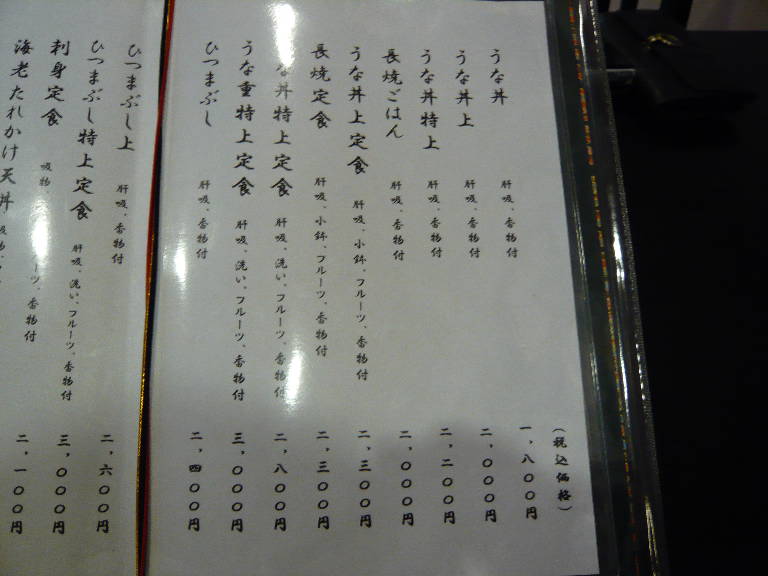 (税込価格)
うな丼 肝吸、香物付 一,八〇〇円
うな丼上 肝吸、香物付 二,〇〇〇円
うな丼特上 肝吸、香物付 二,二〇〇円
長焼ごはん 肝吸、香物付 二,〇〇〇円
うな丼上定食 肝吸、小鉢、フルーツ、香物付 二,三〇〇円
長焼定食 肝吸、小鉢、フルーツ、香物付 二,三〇〇円
な丼特上定食 肝吸、洗い、フルーツ、香物付 二,八〇〇円
うな重特上定食 肝吸、洗い、フルーツ、香物付 三,〇〇〇円
ひつまぶし 肝吸、香物付 二,四〇〇円
ひつまぶし上 肝吸、香物付 二,六〇〇円
ひつまぶし特上定食 肝吸、洗い、フルーツ、香物付 三,〇〇〇円
刺身定食 吸物 ーツ、香物付 二,一〇〇円
海老たれかけ天丼